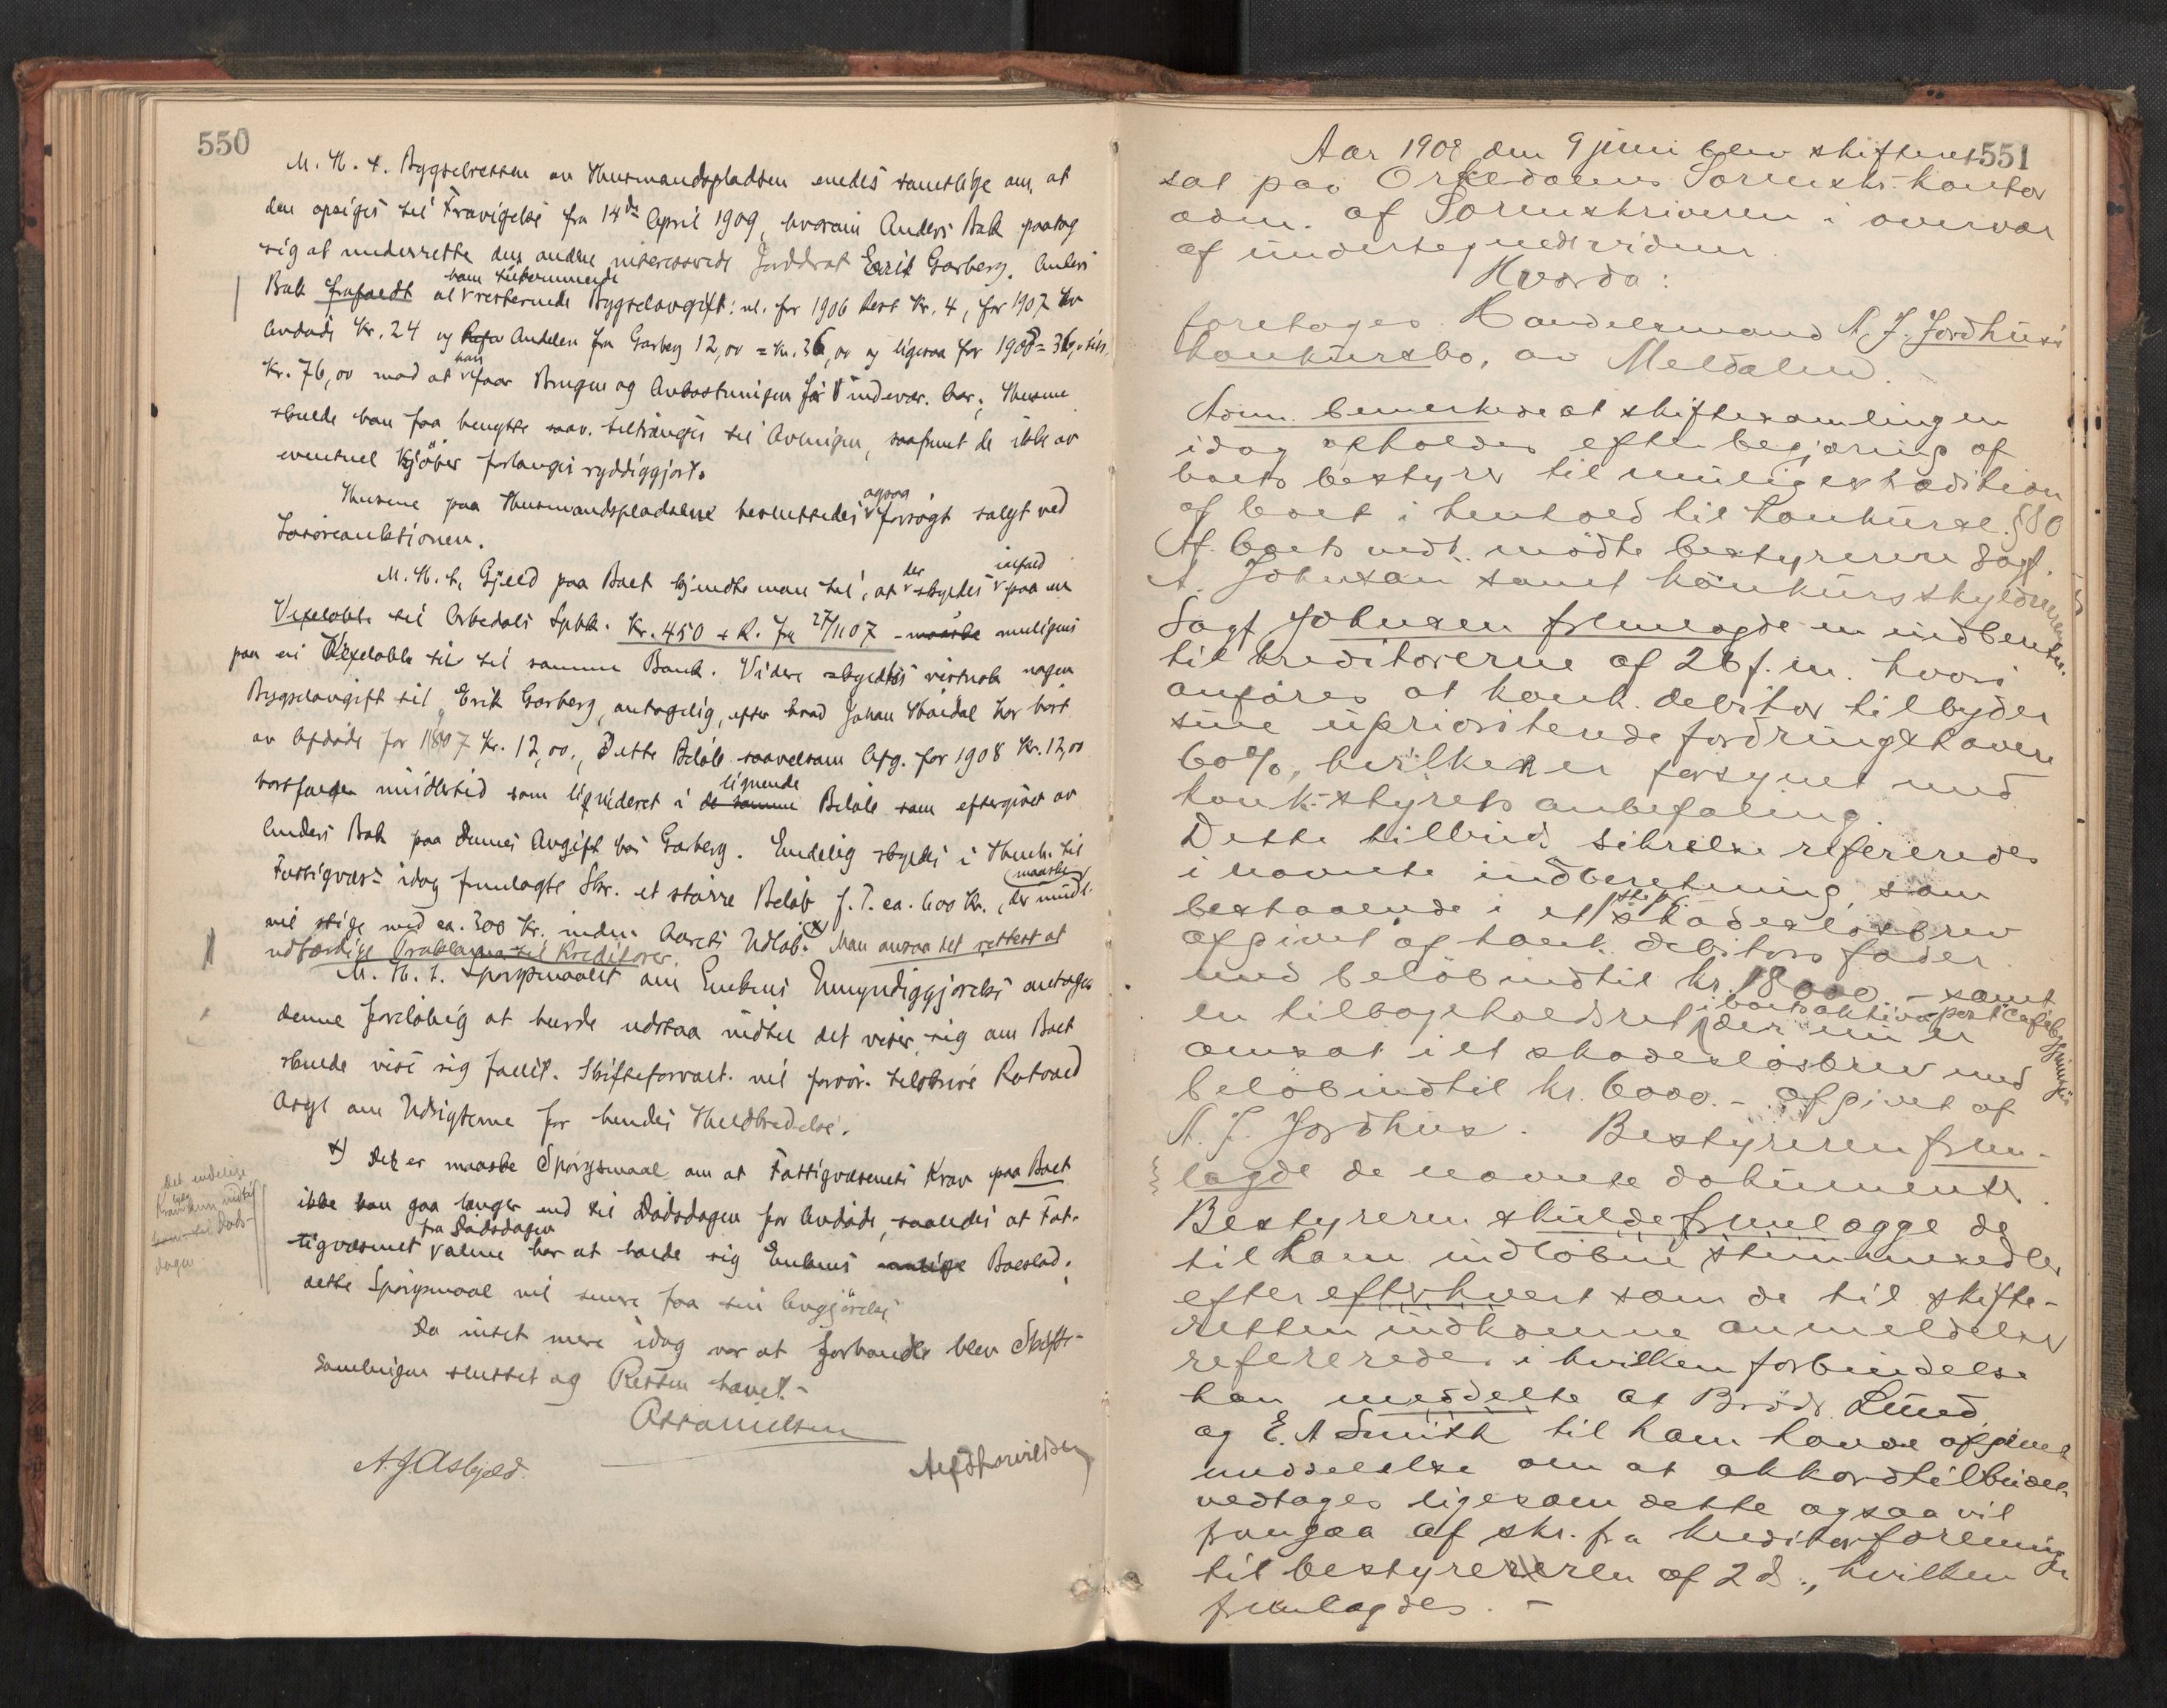 550
M. H. t. Bygselretten av Husmandspladsen enedes samtlige om, at
den opsiges til Fravigelse fra 14de April 1909, hvorom Anders Bak paatog
sig at underrette den anden interesserede Jorddrot Erik Garberg. Anders
Bak frafaldt al ham tilkommende resterende Bygselavgift: nl. for 1906 Rest Kr. 4, for 1907
Avdøde Kr. 24 og Andelen fra Garberg 12,00 = Kr. 36,00 og ligesaa for 1908 = 36,
Kr. 76,00 mod at han faar Brugen og Avkastningen for indevær. Aar; Husene
skulde han faa benytte saav. tiltrænges til Avlingen, saafremt de ikke av
eventuel Kjøber forlanges ryddiggjort.
Husene paa Husmandspladsene besluttedes ogsaa forsøgt solgt ved
Løsøreauktionen.
M. H. t. Gjæld paa Boet kjendte man til, at der skyldes ialfald paa en
Vexelobl. til Orkedals Spbk. Kr. 450 + R. fra 27/11 07 - maaske muligens
paa en Vexelobl. til til samme Bank. Videre skyldtes visstnok nogen
Bygselavgift til Erik Garberg, antagelig, efter hvad Johan har hørt
av Afdøde for 1907 Kr. 12,00, Dette Beløb saavelsom Afg. for 1908 Kr. 12,00
bortfalder imidlertid som likvideret i de samme lignende Beløb som eftergivet av
Anders Bak paa dennes Avgift hos Garberg. Endelig skyldes i Henh. til
Fattigvæs. idag fremlagte Skr. et større Beløb f. T. ca. 600 Kr., der maaske midl.
vil stige med ca. 300 Kr. inden Aarets Udløb. x) Man ansaa det rettest at
udfærdige Proklama til Kreditorer.
M. H. t. Spørgsmaalet om Enkens Umyndiggjørelse antages
denne foreløbig at burde udstaa indtil det viser sig om Boet
skulde vise sig fallit. Skifteforvalt. vil forøv. tilskrive Rotvold
Asyl om Udsigterne for hendes Helbredelse.
x) Det er maaske Spørgsmaal om at Fattigvæsenets Krav paa Boet
ikke kan gaa længer end til Dødsdagen for Avdøde, saaledes at Fat-
tigvæsenet fra Dødsdagen alene har at holde sig Enkens Boeslod;
dette Spørgsmaal vil senere faa sin Avgjørelse
Da intet mere idag var at forhandle blev Skifte-
samlingen sluttet og Retten hævet.-
A. J. Asbjeld.
Det endelige
Krav kun indtil
Døds-
dagen
551
Aar 1908 den 9 juni blev skifteret
sat paa Orkedalens Sorenskr.kontor
adm. af Sorenskriveren i overvær
af undertegnede vidner
Hvorda:
foretoges Handelsmand A. J. Jordhus's
konkursbo, av Meldalen.
Adm. bemerkede at skiftesamlingen
idag afholdes efter begjæring af
boets bestyrer til mulig extradition
af boet i henhold til konkursl. § 80
Af boets vedk. mødte bestyreren Sagf.
A. Johnsen samt konkursskyldneren
Sagf Johnsen fremlagde en indberetn.
til kreditorerne af 26 f. m. hvori
anføres at konk. debitor tilbyder
sine uprioriterede fordringshavere
60%, hvilken er forsynet med
konk.styrets anbefaling.
Dette tilbuds sikrelse refereredes
i nævnte indberetning, som
bestaaende i et skadesløsbrev
afgivet af konk. debitors fader
med beløb indtil kr. 18000 - samt
en tilbageholdsret i boets aktiva der nu er
omsat i et skadesløsbrev med
beløb indtil kr. 6000.- afgivet af
A. J. Jordhus. Bestyreren frem-
lagde de nævnte dokumenter.
Bestyreren skulde fremlægge de
til ham indløbne stemmesedler
efter efterhvert som de til skifte-
retten indkomne anmeldelser
refereredes i hvilken forbindelse
han meddelte at Brødr. Lund
og E. A Smith til ham havde afgivet
meddelelse om at akkordtilbudet
vedtages ligesom dette ogsaa vil
fremgaa af skr. fra kreditorforeningen
til bestyreren af 2 ds., hvilken
fremlagdes. -